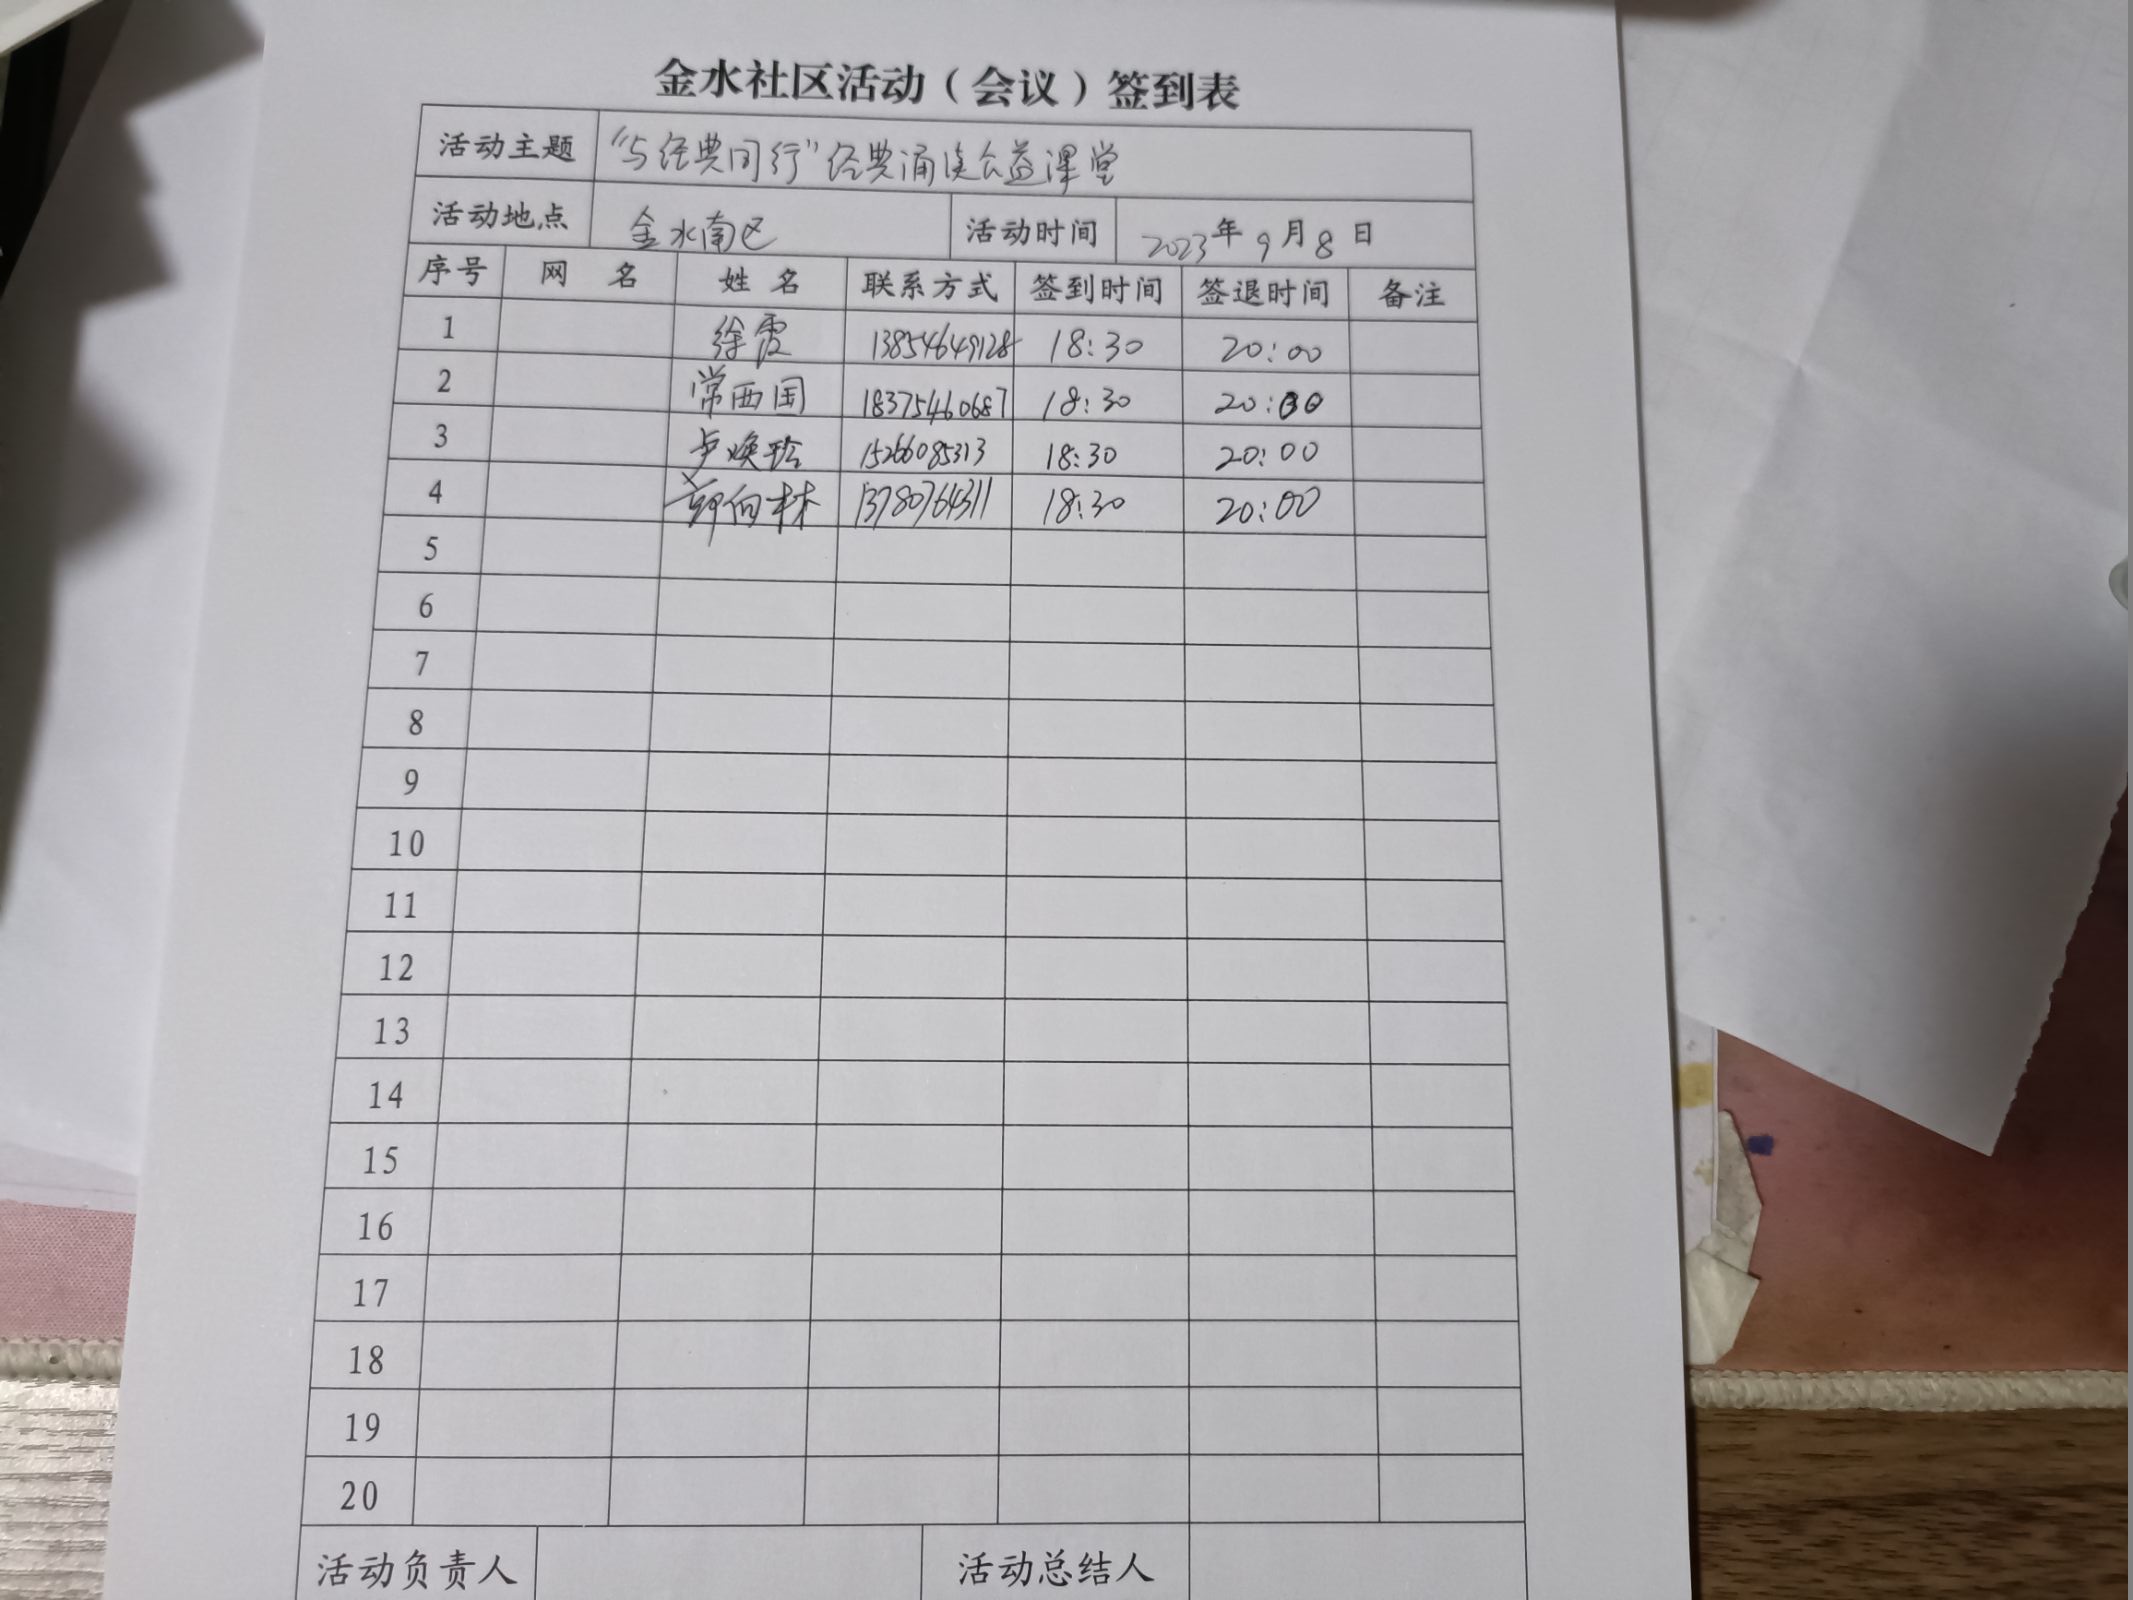 金水社区活动（会议）签到表
活动主题 “与经典同行”经典诵读公益课堂
活动地点 金水南区 活动时间 2023年9月8日
序号 网名 姓名 联系方式 签到时间 签退时间 备注
1 徐霞 13854649128 18:30 20:00
2 常西国 18375460687 18:30 20:00
3 卢焕玲 15266085313 18:30 20:00
4 郭向林 13780764311 18:30 20:00
5
6
7
8
9
10
11
12
13
14
15
16
17
18
19
20
活动负责人 活动总结人